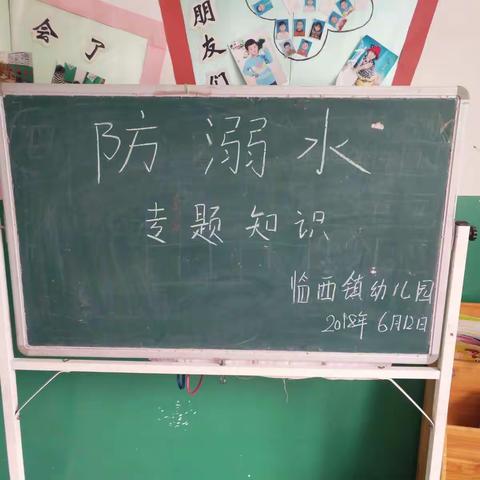 会了
朋友们
防溺水
专题知识
临西镇幼儿园
2018年6月12日